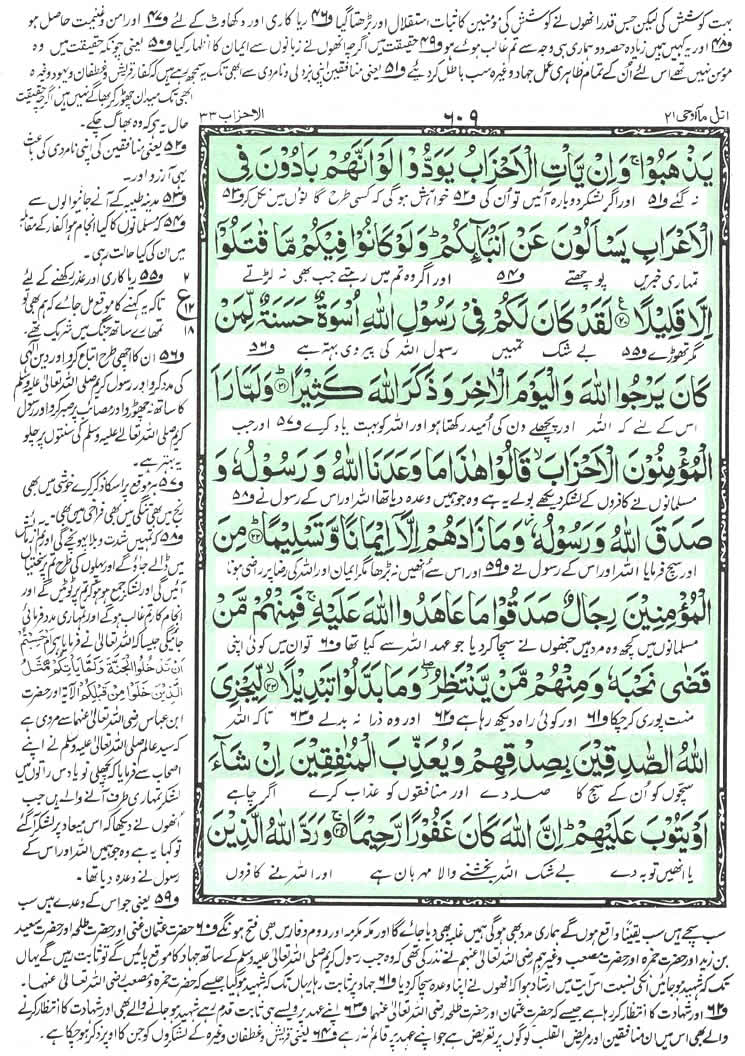 بہت کوشش کی لیکن جس قدر انھوں نے کوشش کی مؤمنین کا ثبات استقلال اور بڑھتا گیا و۴۶ ریاکاری اور دکھاوٹ کے لئے و۴۷ اور امن و غنیمت حاصل ہو
و۴۸ اور یہ کہیں ہمیں زیادہ حصہ دو ہماری ہی وجہ سے تم غالب ہوئے ہو و۴۹ حقیقت میں اگرچہ انھوں نے زبانوں سے ایمان کا اظہار کیا و۵۰ یعنی چونکہ حقیقت میں وہ
مؤمن نہیں تھے اس لئے اُن کے تمام ظاہری عمل جہاد وغیرہ سب باطل کر دیئے و۵۱ یعنی منافقین اپنی بزدلی و نامردی سے ابھی تک یہ سمجھ رہے ہیں کہ کفار قریش و غطفان و یہود وغیرہ
ابھی تک میدان چھوڑ کر بھاگے نہیں ہیں اگرچہ حقیقت
حال یہ ہے کہ وہ بھاگ چکے۔
و۵۲ یعنی منافقین کی اپنی نامردی کے باعث
یہی آرزو اور۔
و۵۳ مدینہ طیبہ کے آنے جانیوالوں سے
و۵۴ مسلمانوں کا کیا انجام ہوا کفار کے مقابلہ
میں ان کی کیا حالت رہی۔
و۵۵ ریاکاری اور عذر رکھنے کے لئے
تاکہ یہ کہنے کا موقع مل جائے کہ ہم بھی تو
تمھارے ساتھ جنگ میں شریک تھے۔
و۵۶ ان کا اچھی طرح اتباع کرو اور دین الٰہی
کی مدد کرو اور رسول کریم صلی اللہ تعالیٰ علیہ وسلم
کا ساتھ نہ چھوڑو اور مصائب پر صبر کرو اور رسول
کریم صلی اللہ تعالےٰ علیہ وسلم کی سنتوں پر چلو
یہ بہتر ہے۔
و۵۷ ہر موقع پر اسکا ذکر کرے خوشی میں بھی
رنج میں بھی تنگی میں بھی فراخی میں بھی۔
و۵۸ کہ تمہیں شدت و بلا پہونچے گی اور تم آزمائش
میں ڈالے جاؤ گے اور پہلوں کی طرح تم پر سختیاں
آئیں گی اور لشکر جمع ہو ہو کر تم پر ٹوٹیں گے اور
انجام کار تم غالب ہو گے اور تمہاری مدد فرمائی
جائیگی جیسا کہ اللہ تعالیٰ نے فرمایا ہے اَمْ حَسِبْتُمْ
اَنْ تَدْخُلُوا الْجَنَّةَ وَلَمَّا يَاْتِكُمْ مَّثَلُ
الَّذِيْنَ خَلَوْا مِنْ قَبْلِكُمْ الآیۃ اور حضرت
ابن عباس رضی اللہ تعالیٰ عنہما سے مروی ہے
کہ سید عالم صلی اللہ تعالیٰ علیہ وسلم نے اپنے
اصحاب سے فرمایا کہ پچھلی نو یا دس راتوں میں
لشکر تمہاری طرف آنے والے ہیں جب
اُنھوں نے دیکھا کہ اس میعاد پر لشکر آ گئے
تو کہا یہ ہے وہ جو ہمیں اللہ اور اس کے
رسول نے وعدہ دیا تھا۔
و۵۹ یعنی جو اس کے وعدے ہیں سب
اتل ما اوحی ۲۱
۶۰۹
الاحزاب ۳۳
يَذْهَبُوْا ۚ وَاِنْ يَّاْتِ الْاَحْزَابُ يَوَدُّوْا لَوْ اَنَّهُمْ بَادُوْنَ فِی
نہ گئے و۵۱ اور اگر لشکر دوبارہ آئیں تو اُن کی و۵۲ خواہش ہو گی کہ کسی طرح گاؤں میں نکل کر و۵۳
الْاَعْرَابِ يَسْاَلُوْنَ عَنْ اَنْۢبَآئِكُمْ ؕ وَلَوْ كَانُوْا فِيْكُمْ مَّا قٰتَلُوْۤا
تمہاری خبریں پوچھتے و۵۴ اور اگر وہ تم میں رہتے جب بھی نہ لڑتے
اِلَّا قَلِيْلًا ﴿۲۰﴾ لَقَدْ كَانَ لَكُمْ فِیْ رَسُوْلِ اللّٰهِ اُسْوَةٌ حَسَنَةٌ لِّمَنْ
مگر تھوڑے و۵۵ بے شک تمہیں رسول اللہ کی پیروی بہتر ہے و۵۶
۲
ع
۱۲
۱۸
كَانَ يَرْجُوا اللّٰهَ وَالْيَوْمَ الْاٰخِرَ وَذَكَرَ اللّٰهَ كَثِيْرًا ﴿۲۱﴾ وَلَمَّا رَاَ
اس کے لئے کہ اللہ اور پچھلے دن کی اُمید رکھتا ہو اور اللہ کو بہت یاد کرے و۵۷ اور جب
الْمُؤْمِنُوْنَ الْاَحْزَابَ ۙ قَالُوْا هٰذَا مَا وَعَدَنَا اللّٰهُ وَرَسُوْلُهٗ وَ
مسلمانوں نے کافروں کے لشکر دیکھے بولے یہ ہے وہ جو ہمیں وعدہ دیا تھا اللہ اور اس کے رسول نے و۵۸
صَدَقَ اللّٰهُ وَرَسُوْلُهٗ ۫ وَمَا زَادَهُمْ اِلَّاۤ اِيْمَانًا وَّتَسْلِيْمًا ﴿۲۲﴾ مِنَ
اور سچ فرمایا اللہ اور اس کے رسول نے و۵۹ اور اس سے اُنھیں نہ بڑھا مگر ایمان اور اللہ کی رضا پر راضی ہونا
الْمُؤْمِنِيْنَ رِجَالٌ صَدَقُوْا مَا عَاهَدُوا اللّٰهَ عَلَيْهِ ۚ فَمِنْهُمْ مَّنْ
مسلمانوں میں کچھ وہ مرد ہیں جنھوں نے سچا کر دیا جو عہد اللہ سے کیا تھا و۶۰ تو ان میں کوئی اپنی
قَضٰى نَحْبَهٗ وَمِنْهُمْ مَّنْ يَّنْتَظِرُ ۖ وَمَا بَدَّلُوْا تَبْدِيْلًا ﴿۲۳﴾ لِّيَجْزِیَ
منت پوری کر چکا و۶۱ اور کوئی راہ دیکھ رہا ہے و۶۲ اور وہ ذرا نہ بدلے و۶۳ تاکہ اللہ
اللّٰهُ الصّٰدِقِيْنَ بِصِدْقِهِمْ وَيُعَذِّبَ الْمُنٰفِقِيْنَ اِنْ شَآءَ
سچوں کو اُن کے سچ کا صلہ دے اور منافقوں کو عذاب کرے اگر چاہے
اَوْ يَتُوْبَ عَلَيْهِمْ ؕ اِنَّ اللّٰهَ كَانَ غَفُوْرًا رَّحِيْمًا ﴿۲۴﴾ وَرَدَّ اللّٰهُ الَّذِيْنَ
یا انھیں توبہ دے بے شک اللہ بخشنے والا مہربان ہے اور اللہ نے کافروں
سب سچے ہیں سب یقینًا واقع ہوں گے ہماری مدد بھی ہو گی ہمیں غلبہ بھی دیا جائے گا اور مکہ مکرمہ اور روم و فارس بھی فتح ہونگے و۶۰ حضرت عثمان غنی اور حضرت طلحہ اور حضرت سعید
بن زید اور حضرت حمزہ اور حضرت مصعب وغیرہم رضی اللہ تعالیٰ عنہم نے نذر کی تھی کہ وہ جب رسول کریم صلی اللہ تعالیٰ علیہ وسلم کے ساتھ جہاد کا موقع پائیں گے تو ثابت رہیں گے یہاں
تک کہ شہید ہو جائیں اُنکی نسبت اس آیت میں ارشاد ہوا کہ انھوں نے اپنا وعدہ سچا کر دیا و۶۱ جہاد پر ثابت رہا یہاں تک کہ شہید ہو گیا جیسے کہ حضرت حمزہ و مصعب رضی اللہ تعالیٰ عنہما۔
و۶۲ اور شہادت کا انتظار کر رہا ہے جیسے کہ حضرت عثمان اور حضرت طلحہ رضی اللہ تعالیٰ عنہما و۶۳ اپنے عہد پر ویسے ہی ثابت قدم رہے شہید ہو جانے والے بھی اور شہادت کا انتظار کرنے
والے بھی اس میں ان منافقین اور مریض القلب لوگوں پر تعریض ہے جو اپنے عہد پر قائم نہ رہے و۶۴ یعنی قریش و غطفان وغیرہ کے لشکروں کو جن کا اوپر ذکر ہو چکا ہے۔